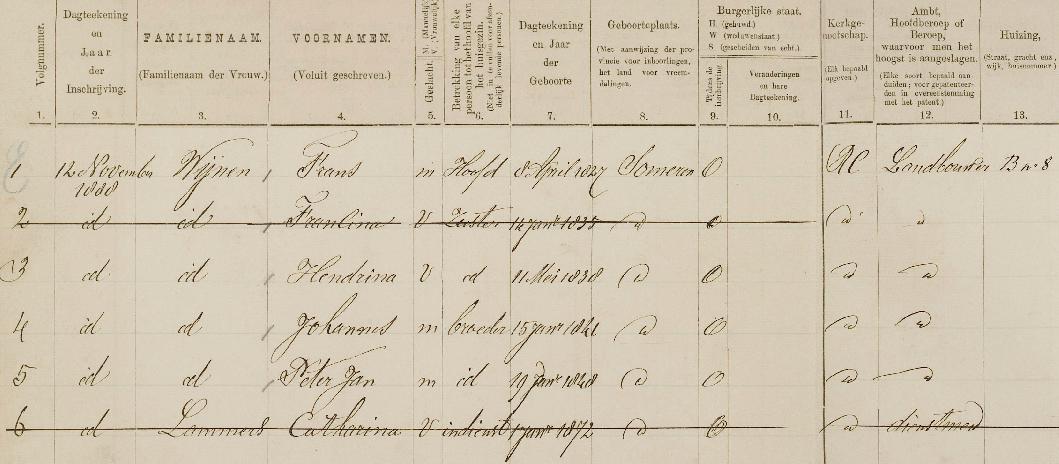 Volgnummer. Dagteekening en Jaar der Inschrijving. FAMILIENAAM. (Familienaam der Vrouw.) VOORNAMEN. (Voluit geschreven.) Geslacht. M. (Mannelijk) V. (Vrouwelijk) Betrekking van elke persoon tot het hoofd van het huisgezin. Dagteekening en Jaar der Geboorte Geboorteplaats. (Met aanwijzing der provincie voor inboorlingen, het land voor vreemdelingen. Burgerlijke staat. H. (gehuwd.) W (weduwenstaat.) S (gescheiden van echt.) Tijdens de inschrijving Veranderingen en hare Dagteekening. Kerkgenootschap. (Elk bepaald opgeven.) Ambt, Hoofdberoep of Beroep, waarvoor men het hoogst is aangeslagen. (Elke soort bepaald aanduiden; voor gepatenteerden in overeenstemming met het patent.) Huizing, (Straat, gracht enz., wijk, huisnummer.)
1. 2. 3. 4. 5. 6. 7. 8. 9. 10. 11. 12. 13.
1 12 November 1888 Wijnen, Frans m Hoofd 8 April 1827 Someren O RC Landbouwer B n° 8
2 id id, Francina V Zuster 14 Janr 1835 id O id id
3 id id, Hendrina V id 11 Mei 1838 id O id id
4 id id, Johannes m broeder 15 Janr 1841 id O id id
5 id id, Peter Jan m id 19 Janr 1848 id O id id
6 id Lammers Catharina V in dienst Janr 1872 id O id dienstmeid